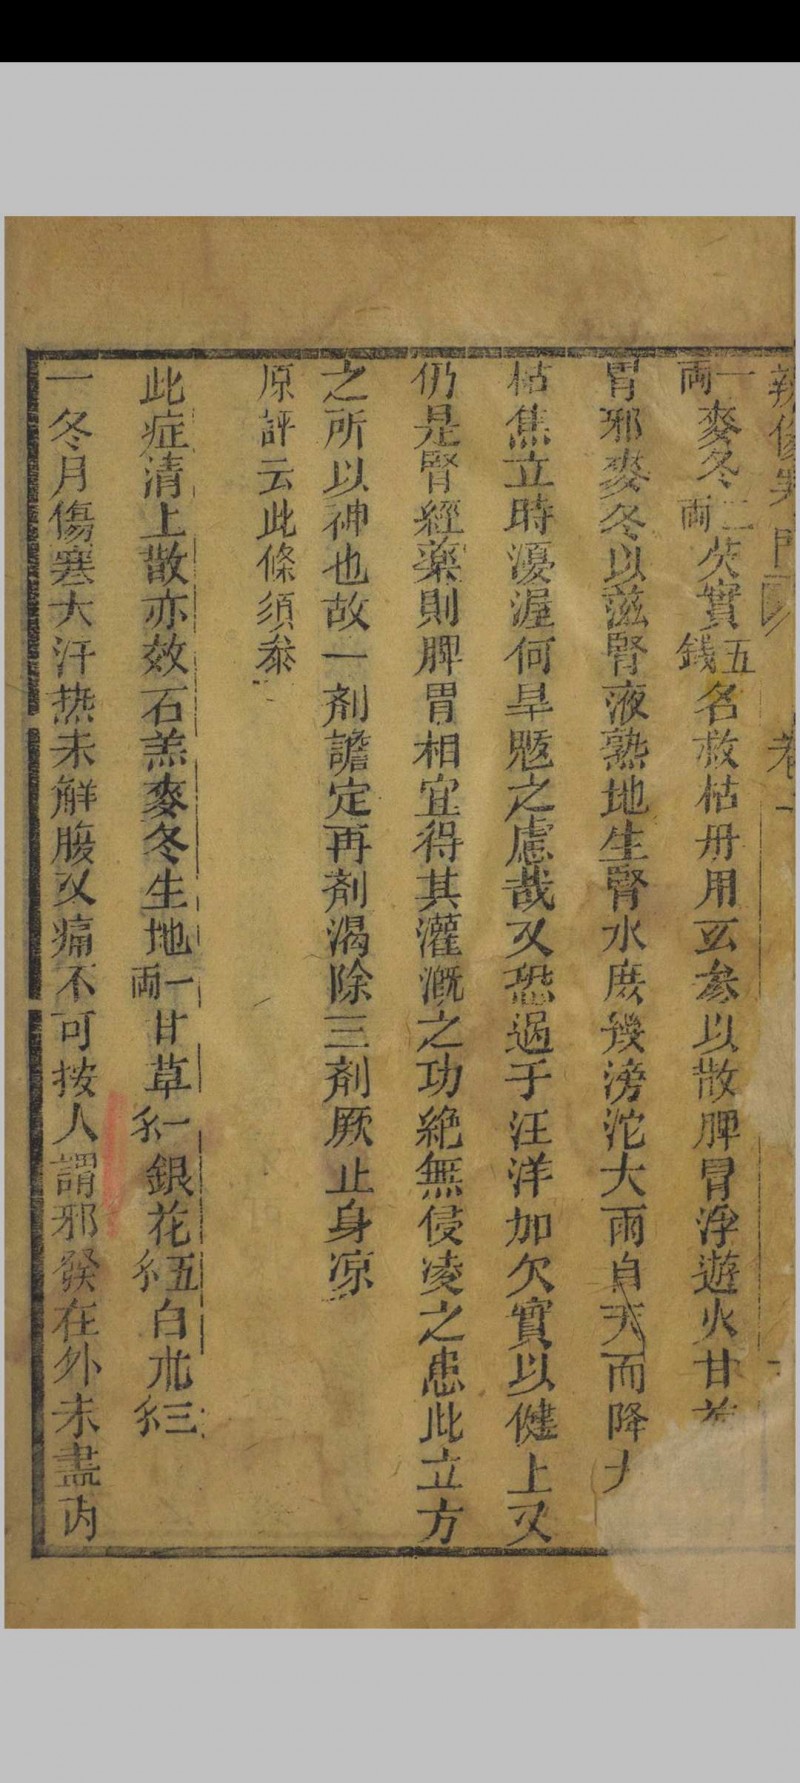 卷一
一兩麥冬二兩芡實五錢名救枯丹用玄參以散脾胃浮遊火甘菊
胃邪麥冬以滋腎液熟地生腎水庶幾滂沱大雨自天而降大
枯焦立時優渥何旱魃之慮哉又恐過于汪洋加欠實以健土又
仍是腎經藥則脾胃相宜得其灌溉之功絶無侵凌之患此立方
之所以神也故一剤譫定再剤渴除三剤厥止身凉
原評云此條須叅
此症清上散亦效石羔麥冬生地一兩甘草一𠆤銀花五𠆤白朮三𠆤
一冬月傷寒大汗热未觧腹又痛不可按人謂邪發在外未盡内